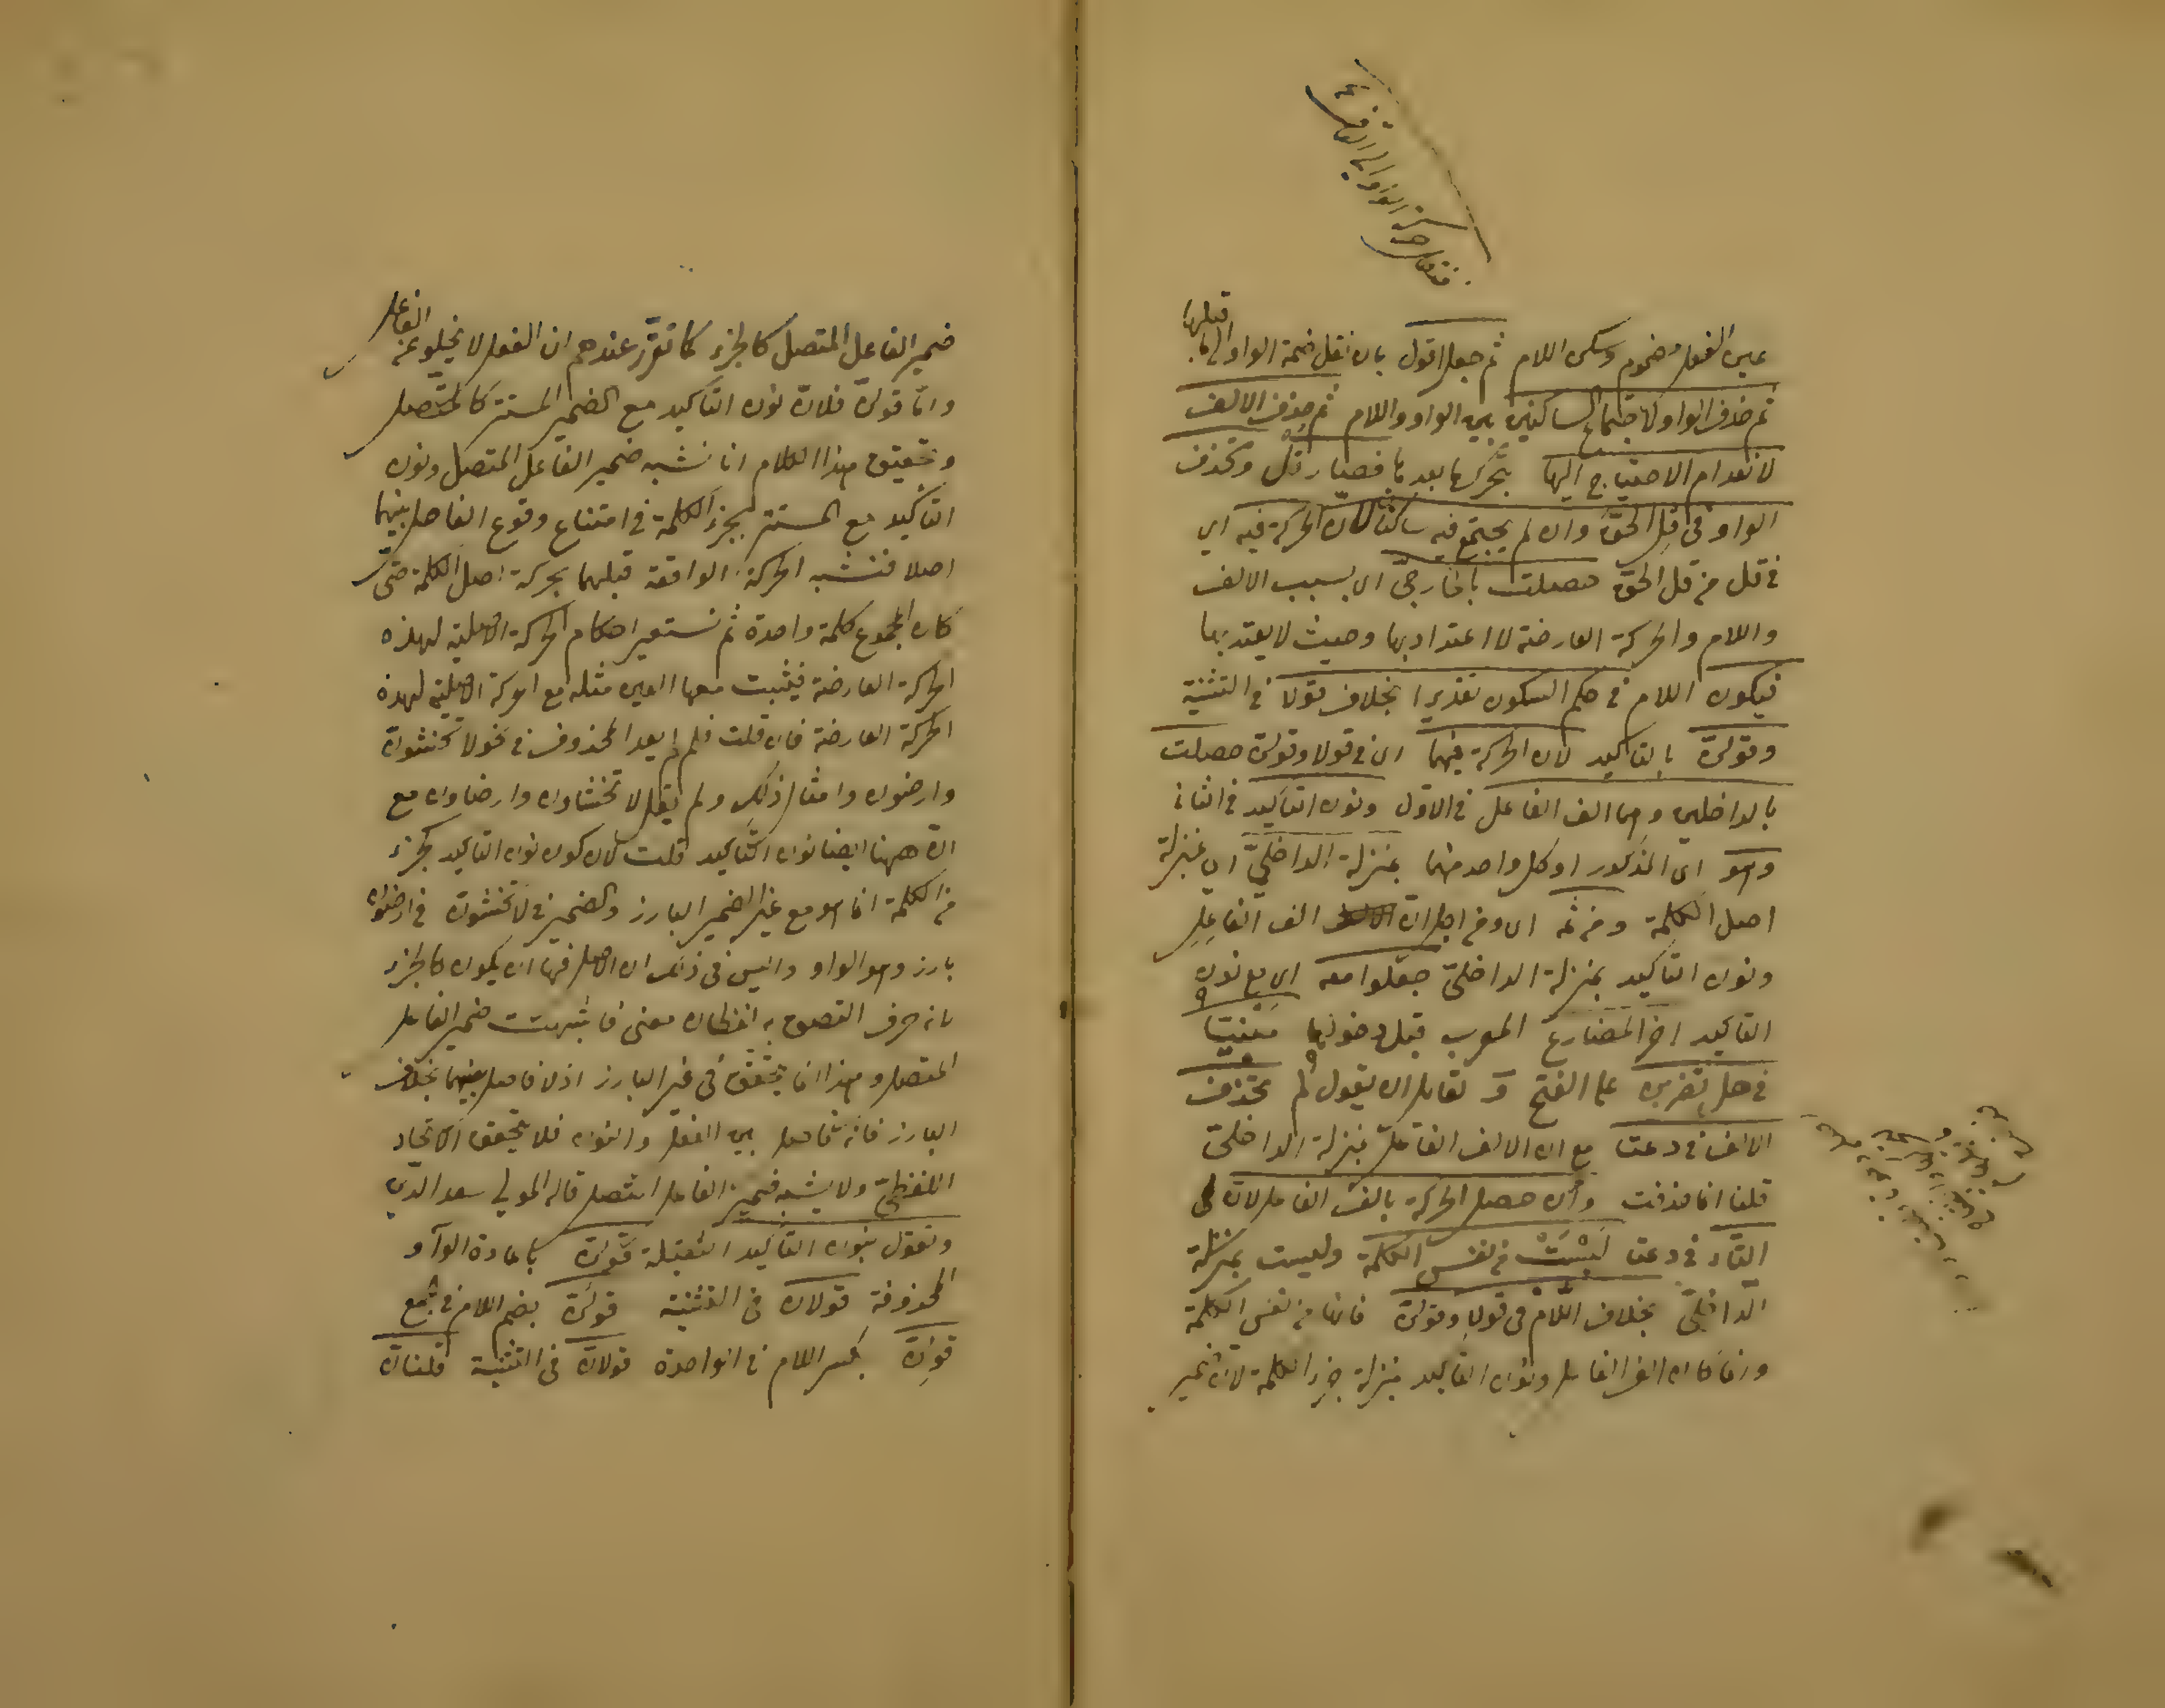 عين الفعل مضموم وسكن اللام ثم جعل اقول بان نقل ضمة الواو الى ما قبلها
ثم حذف الواو لاجتماع الساكنين بين الواو واللام ثم حذف الالف
لانعدام الاحتياج اليها بتحرك ما بعدها فصار قل وتحذف
الواو فى قل الحق وان لم يجتمع فيه ساكنان لان الحركة فيه اى
فى قل من قل الحق حصلت بالخارجى اى بسبب الالف
واللام والحركة العارضة لا اعتداد بها وحيث لا يعتد بها
فيكون اللام فى حكم السكون تقديرا بخلاف قولا فى التثنية
وقولن بالتاكيد لان الحركة فيهما اى فى قولا وقولن حصلت
بالداخلين وهما الف الفاعل فى الاول ونون التاكيد فى الثانى
وهو اى المذكور او كل واحد منهما بمنزلة الداخلى اى بمنزلة
اصل الكلمة ومن ثمه اى ومن اجل ان الف الفاعل
ونون التاكيد بمنزلة الداخلى جعلوا معه اى مع نون
التاكيد اخر المضارع المعرب قبل دخولها مبنيا
فى هل يضربن على الفتح و لقائل ان يقول لم تحذف
الالف فى دعتا مع ان الالف الفاعل بمنزلة الداخلى
قلنا انما حذفت وان حصل الحركة بالف الفاعل لان
التاء فى دعتا ليست من نفس الكلمة وليست بمنزلة
الداخلى بخلاف اللام فى قولا وقولن فانها من نفس الكلمة
وانما كان الف الفاعل ونون التاكيد بمنزلة جزء الكلمة لان ضمير
ضمير الفاعل المتصل كالجزء كما تقرر عندهم ان الفعل لا يخلو عن الفاعل
واما قولن فلان نون التاكيد مع الضمير المستتر كالمتصل
وتحقيق هذا الكلام انا نشبه ضمير الفاعل المتصل ونون
التاكيد مع المستتر بجزء الكلمة فى امتناع وقوع الفاصل بينهما
اصلا فنشبه الحركة الواقعة قبلهما بحركة اصل الكلمة حتى
كان المجموع كلمة واحدة ثم نستعير احكام الحركة الاصلية لهذه
الحركة العارضة فيثبت معها العين مثله مع الحركة الاصلية لهذه
الحركة العارضة فان قلت فلم لم يعد المحذوف فى نحو لا تخشون
وارضون وامثال ذلك ولم يقل لا تخشاون وارضاون مع
ان ههنا ايضا نون التاكيد قلت لان كون نون التاكيد كجزء
من الكلمة انما هو مع غير الضمير البارز والضمير فى لا تخشون فى ارضون
بارز وهو الواو والسر فى ذلك ان الاصل فيها ان يكون كالجزء
لانه حرف التصق به لفظا ومعنى فاشبهت ضمير الفاعل
المتصل وهذا انما يتحقق فى غير البارز اذ لا فاصل بينهما بخلاف
البارز فانه فاصل بين الفعل والنون فلا يتحقق الاتحاد
اللفظى ولا يشبه ضمير الفاعل المتصل قاله المولى سعد الدين
وتقول بنون التاكيد الثقيلة قولن باعادة الواو
المحذوفة قولان فى التثنية قولن بضم اللام فى الجمع
قولن بكسر اللام فى الواحدة قولان فى التثنية قلنان